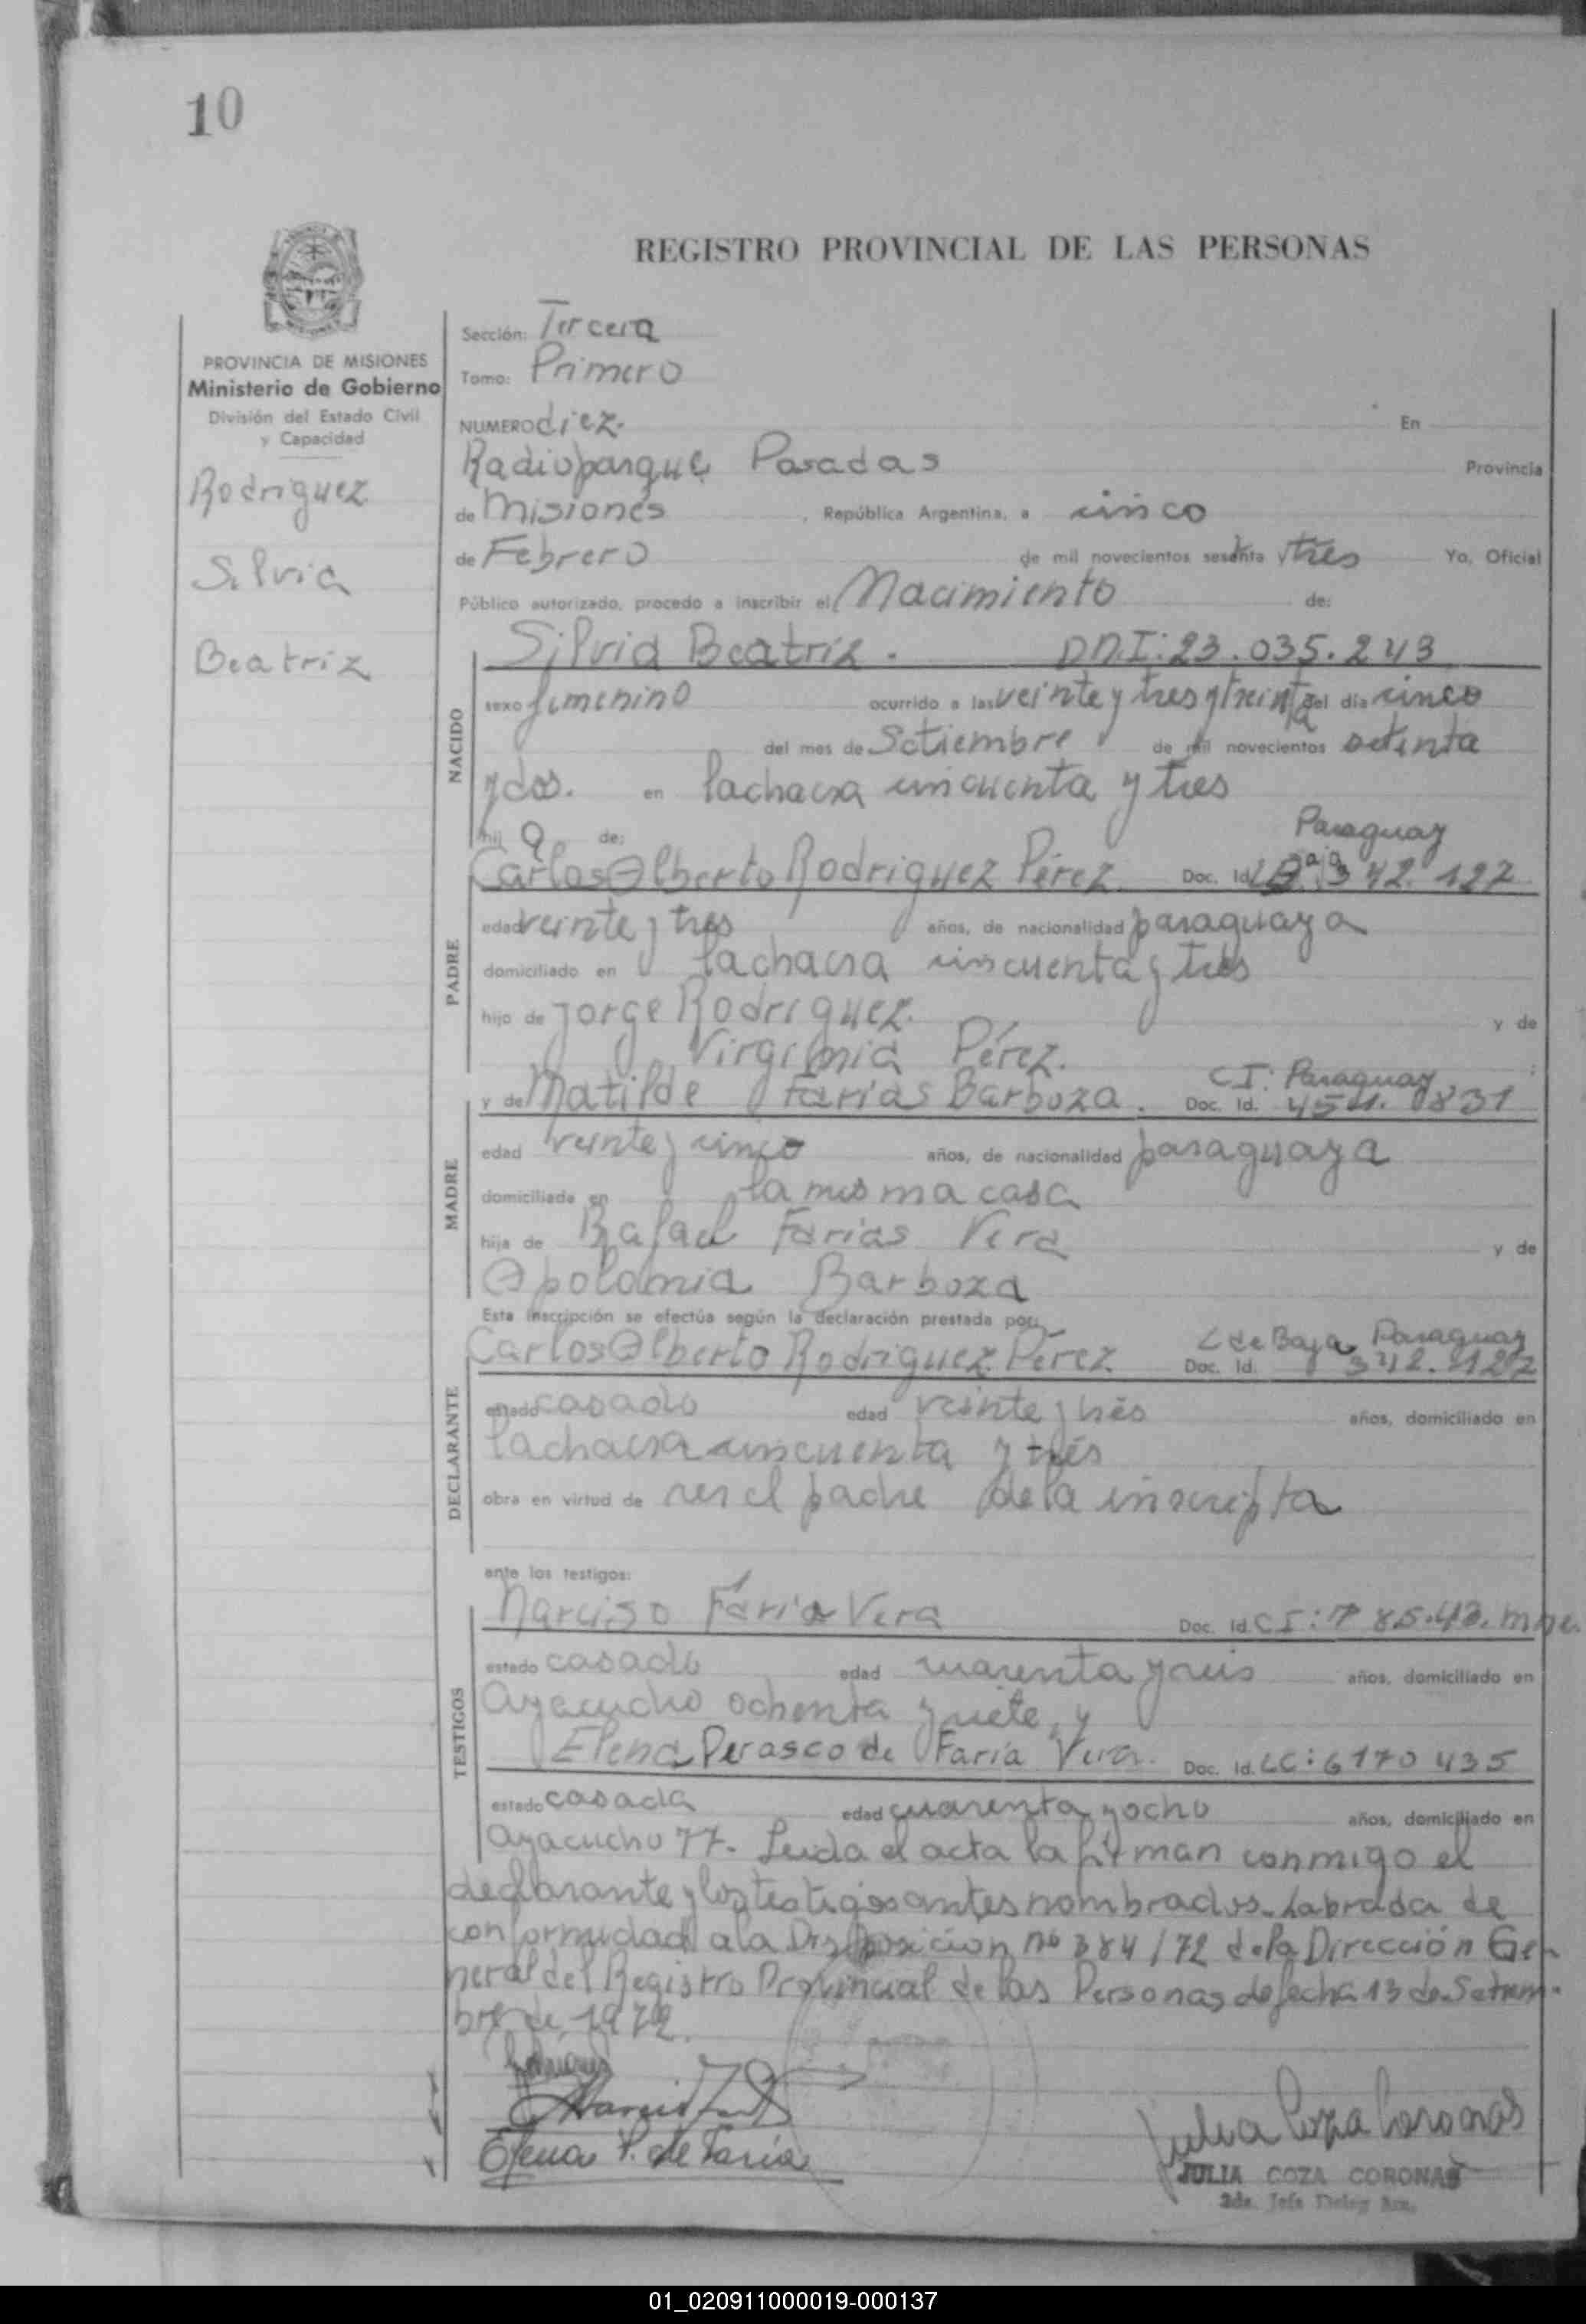 10
REGISTRO PROVINCIAL DE LAS PERSONAS
PROVINCIA DE MISIONES
Ministerio de Gobierno
División del Estado Civil
y Capacidad
Rodriguez
Silvia
Beatriz
Sección: Tercera
Tomo: Primero
NUMERO diez. En
Radioparque Posadas Provincia
de Misiones, República Argentina, a cinco
de Febrero de mil novecientos setenta y tres Yo, Oficial
Público autorizado, procedo a inscribir el Nacimiento de:
Silvia Beatriz. DNI: 23.035.243
NACIDO
sexo femenino ocurrido a las veinte y tres y treinta del día cinco
del mes de Setiembre de mil novecientos setenta
y dos. en la chacra cincuenta y tres
hij a de:
Paraguay
Carlos Alberto Rodriguez Pérez Doc. Id. 342.127
PADRE
edad veinte y tres años, de nacionalidad paraguaya
domiciliado en la chacra cincuenta y tres
hijo de Jorge Rodriguez. y de
Virginia Pérez.
CI: Paraguay
y de Matilde Farias Barboza. Doc. Id. 831
MADRE
edad veinte y cinco años, de nacionalidad paraguaya
domiciliada en la misma casa
hija de Rafael Farias Vera y de
Apolonia Barboza
Esta inscripción se efectúa según la declaración prestada por:
L de Baja Paraguay
Carlos Alberto Rodriguez Pérez Doc. Id. 342.127
DECLARANTE
estado casado edad veinte y trés años, domiciliado en
la chacra cincuenta y trés
obra en virtud de ser el padre de la inscripta
ante los testigos:
Narciso Faria Vera Doc. Id. CI: 85.43.
TESTIGOS
estado casado edad cuarenta y seis años, domiciliado en
Ayacucho ochenta y siete, y
Elena Perasco de Faria Vera. Doc. Id. LC: 6170435
estado casada edad cuarenta y ocho años, domiciliado en
Ayacucho 77. Leida el acta la firman conmigo el
declarante y los testigos antes nombrados. Labrada de
conformidad a la Disposicion nº 384/72 de la Dirección Ge-
neral del Registro Provincial de las Personas de fecha 13 de Setiem-
bre de 1972.
Elena P. de Faria
Julia Coza Coronas
JULIA COZA CORONAS
01_020911000019-000137